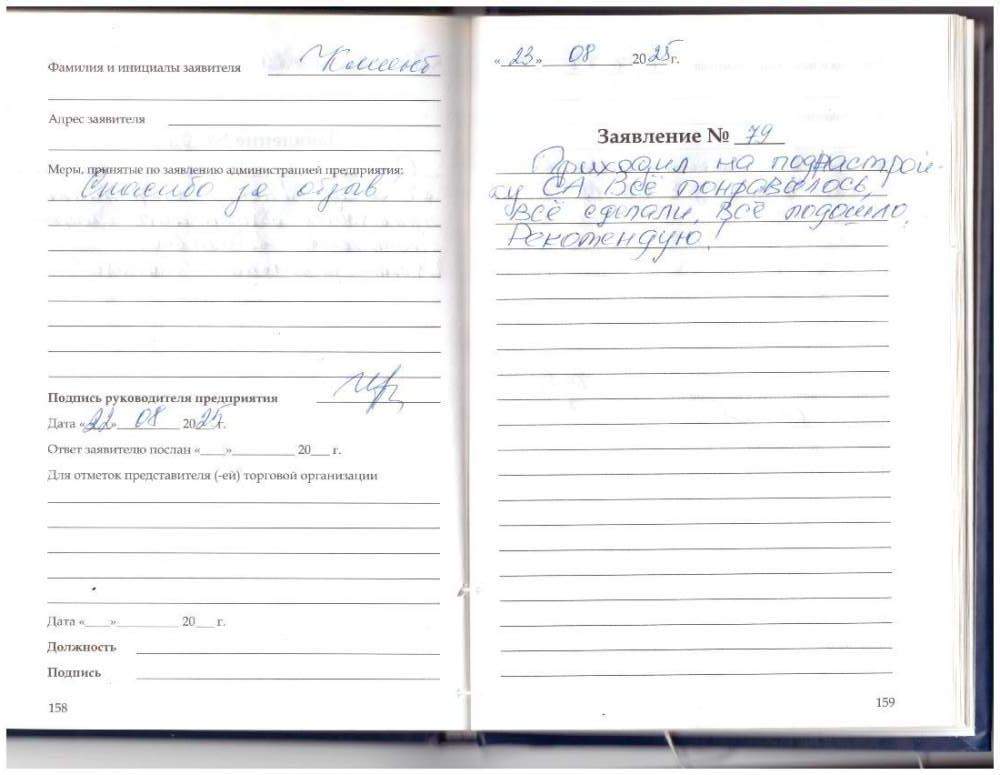 Фамилия и инициалы заявителя
Адрес заявителя
Меры, принятые по заявлению администрацией предприятия:
Спасибо за отзыв
Подпись руководителя предприятия
Дата «22» 08 2025г.
Ответ заявителю послан «____»__________ 20___ г.
Для отметок представителя (-ей) торговой организации
Дата «____»__________ 20___ г.
Должность
Подпись
158
«23» 08 2025г.
Заявление № 79
Приходил на поднастрой-
ку СА. Всё понравилось,
Всё сделали, всё подошло.
Рекомендую!
159